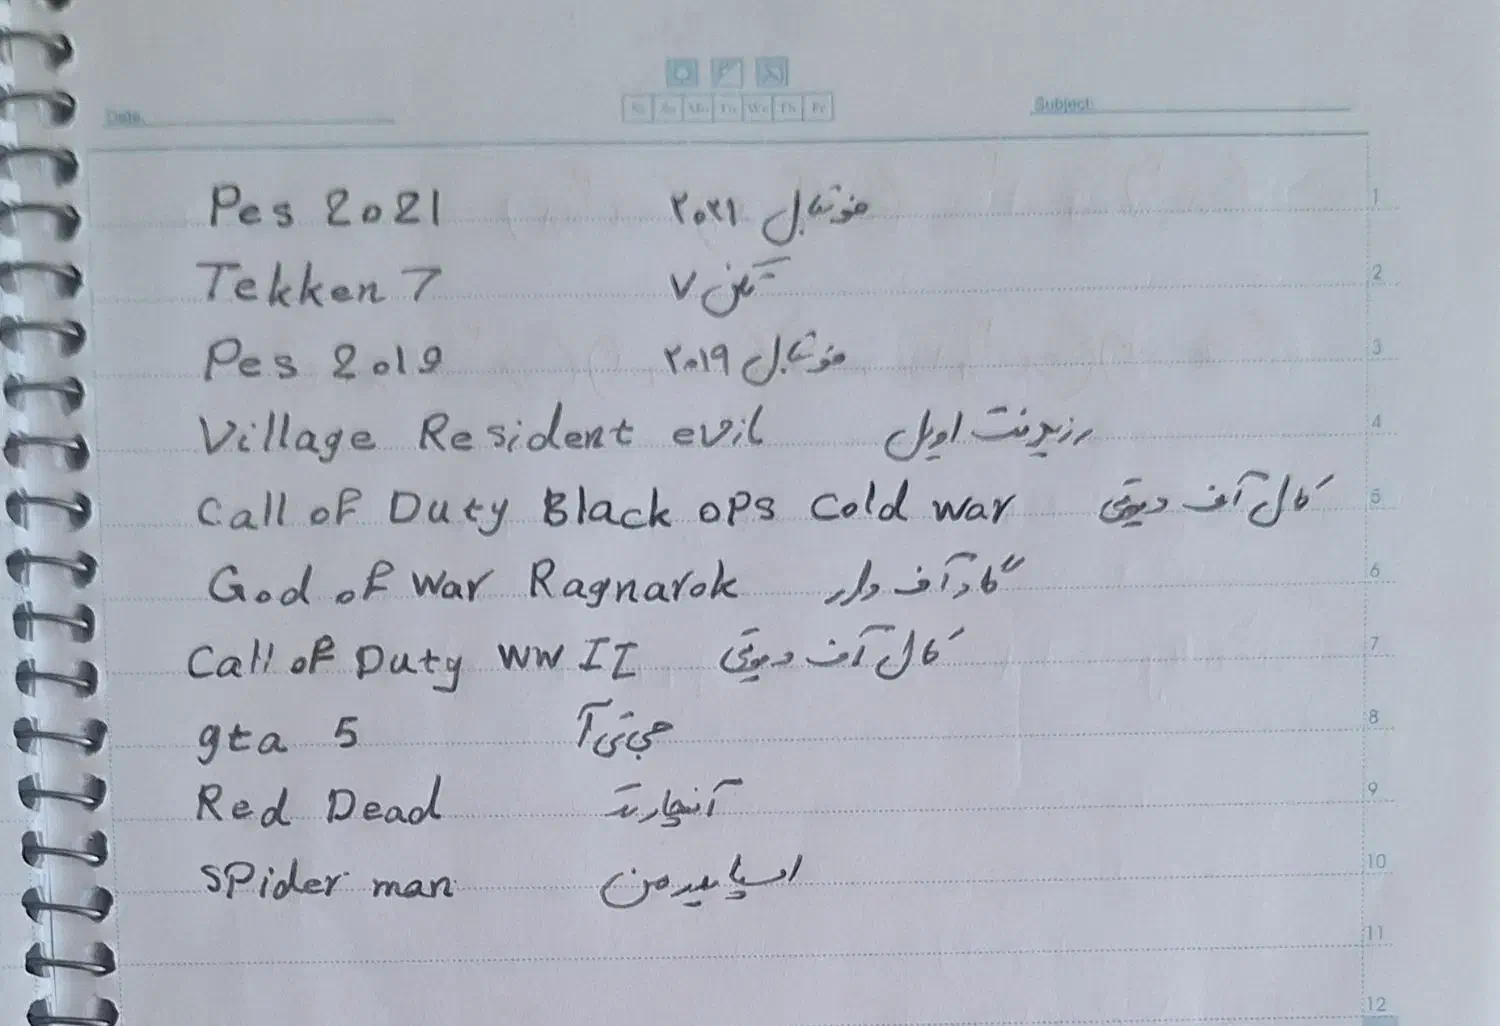 Date:
Sa Su Mo Tu We Th Fr
Subject:
Pes 2021 فوتبال ۲۰۲۱ 1
Tekken 7 تکن ۷ 2
Pes 2019 فوتبال ۲۰۱۹ 3
Village Resident evil رزیدنت اویل 4
Call of Duty Black ops cold war کال آف دیوتی 5
God of war Ragnarok گاد آف وار 6
Call of Duty WW II کال آف دیوتی 7
gta 5 جی تی آ 8
Red Dead آنچارتد 9
SPider man اسپایدرمن 10
11
12